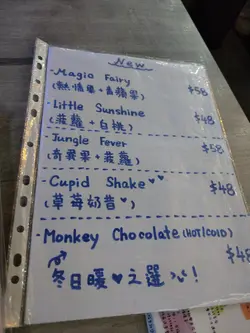 New
- Magic Fairy
(熱情果 + 青蘋果) $58
- Little Sunshine
(菠蘿 + 白桃) $48
- Jungle Fever
(奇異果 + 菠蘿) $58
- Cupid Shake ♥♥
(草莓奶昔♥) $48
- Monkey Chocolate (HOT/COLD) $48
冬日暖♥之選 !